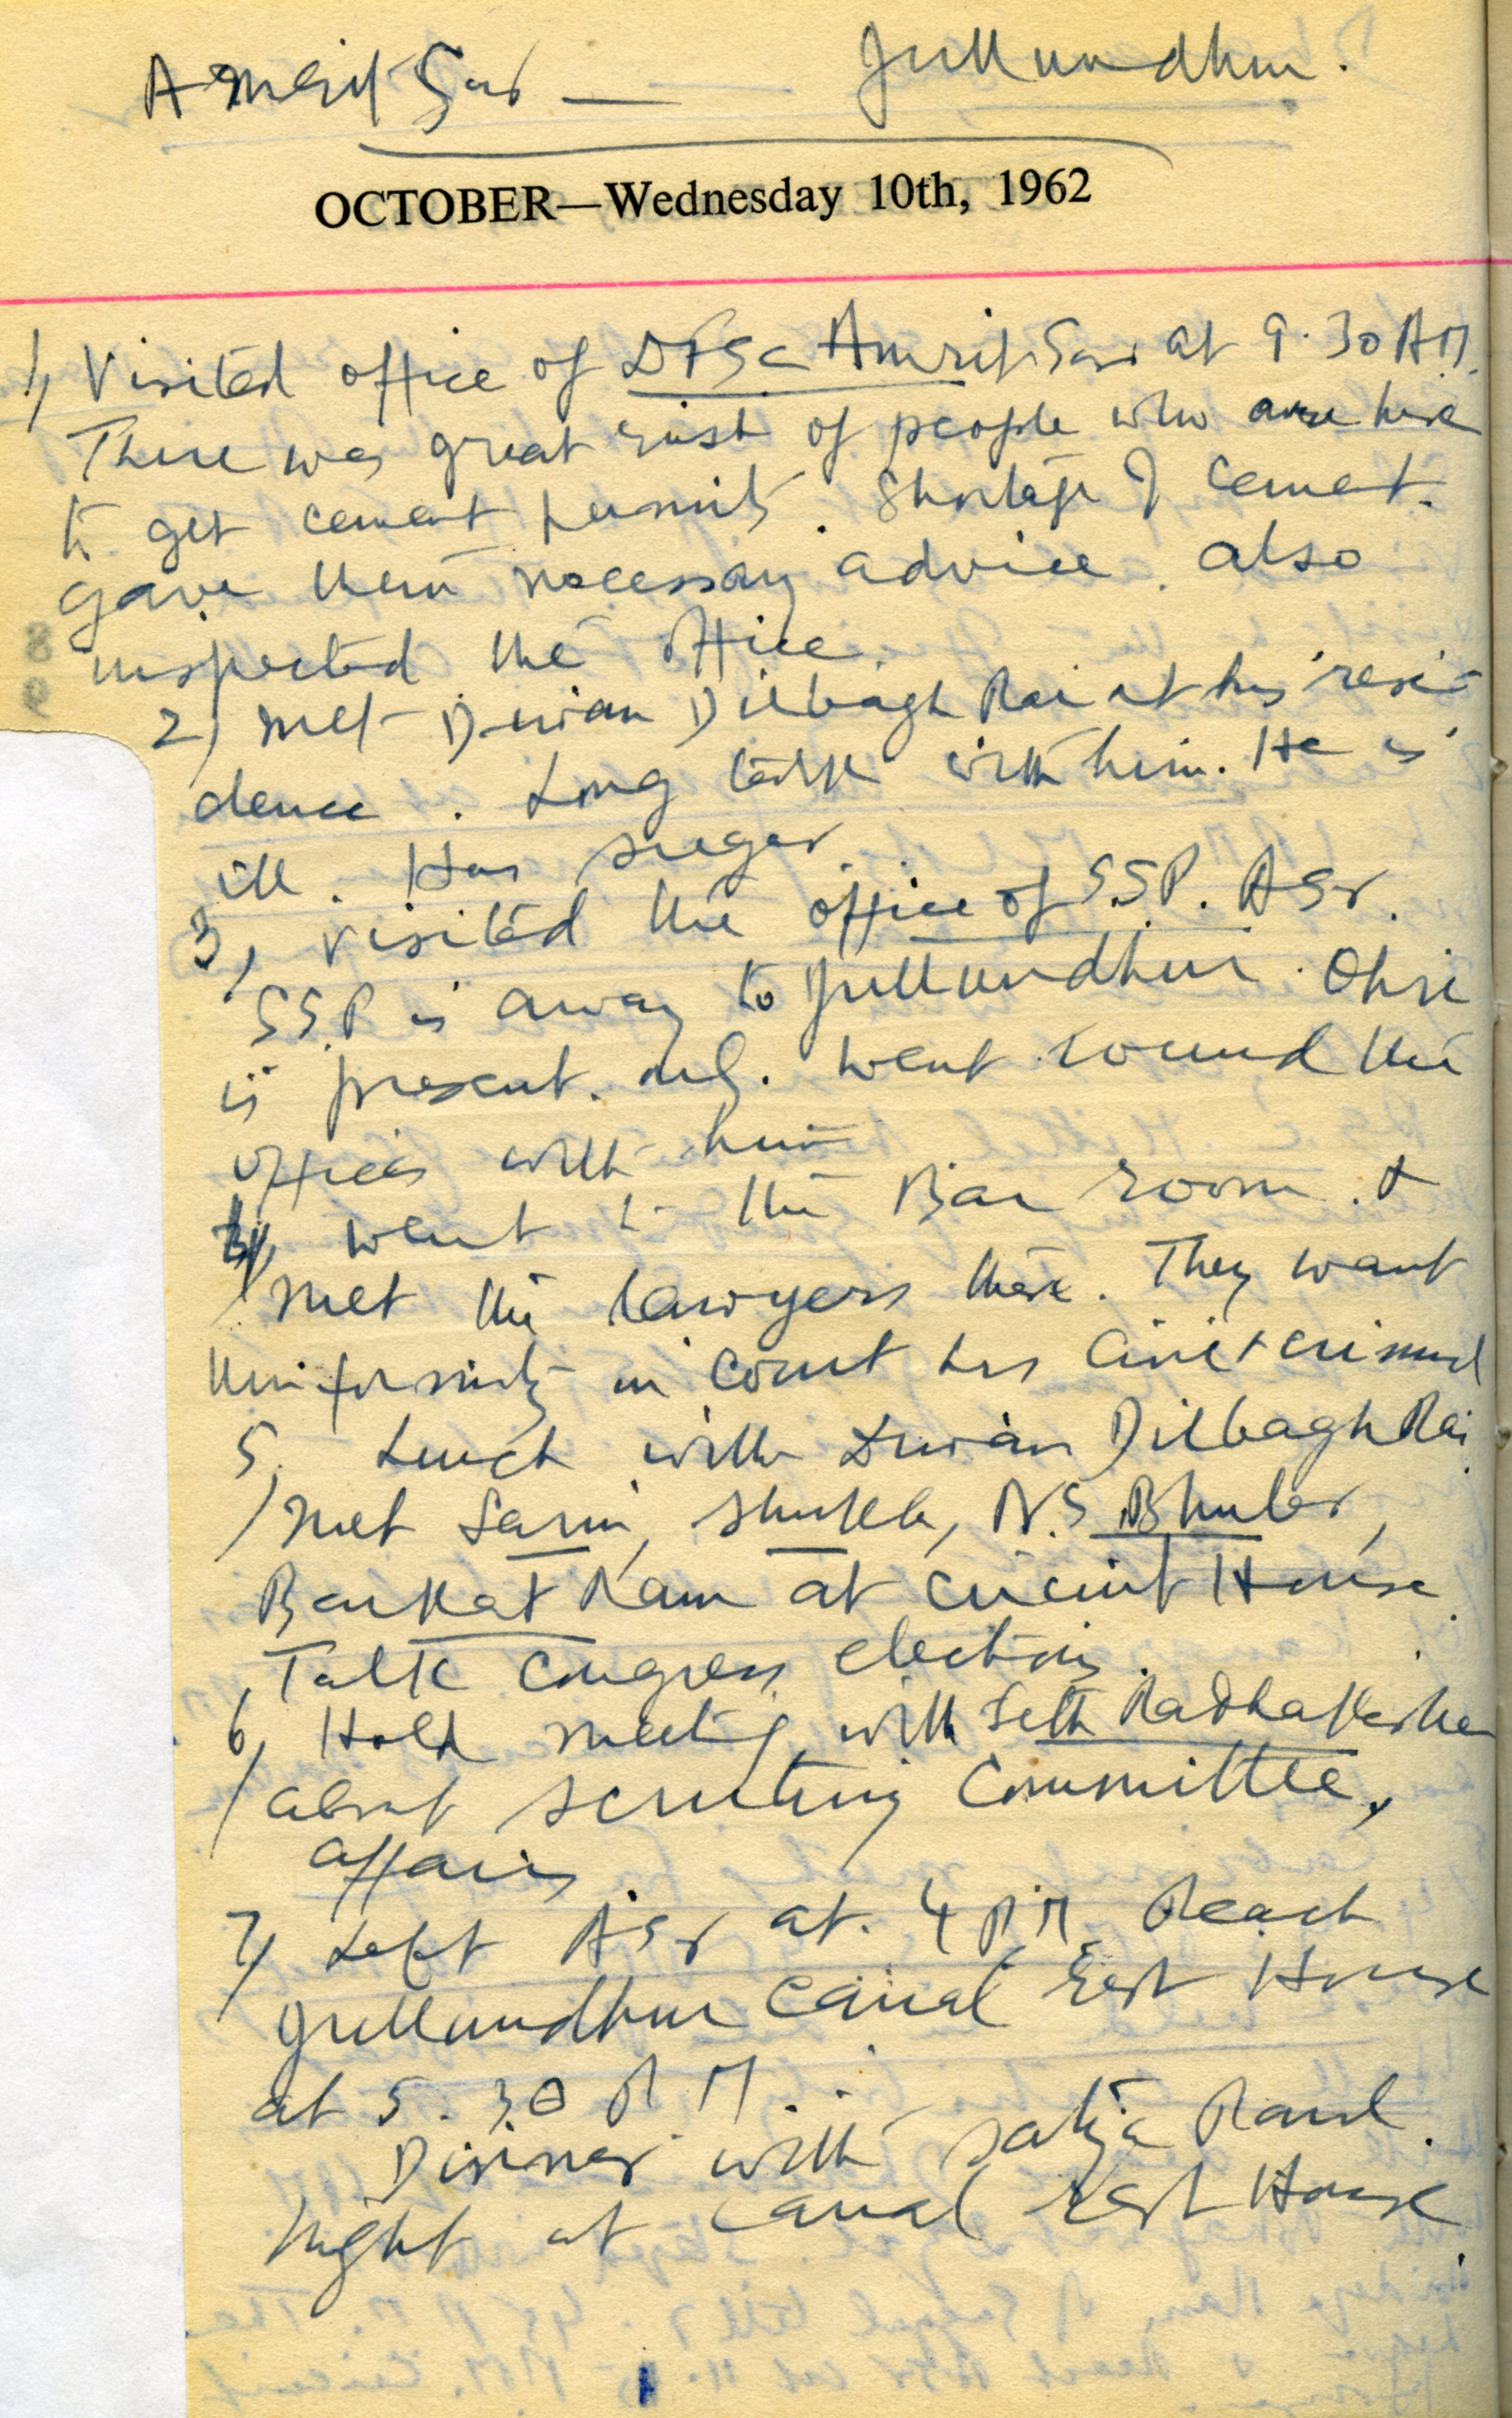 Amrit Sar — Jullundhur.
OCTOBER—Wednesday 10th, 1962
1, Visited office of DFSC Amrit Sar at 9.30 AM.
There was great rush of people who are here
to get cement permits. Shortage of cement.
gave them necessary advice. also
inspected the office.
2) Met Diwan Dilbagh Rai at his resi-
dence. Long talk with him. He is
ill. Has suger
3, Visited the office of S.S.P. ASr.
S.S.P is away to Jullundhur. Ohri
is present. went round the
offices with him
4, went to the Bar room &
met the lawyers there. They want
Uniformity in Court hrs Civil & criminal
5, Lunch with Diwan Dilbagh Rai
Met Sarin, Shukla, N.S. Bhuler,
Barkat Ram at circuit House.
Talk Congress elections.
6, Hold meeting with Seth Radhakishen
about scrutiny Committee,
affairs
7, Left ASr at. 4 P.M Reach
Jullundhur Canal Rest House
at 5.30 P.M.
Dinner with Satya Paul.
Night at Canal Rest House.